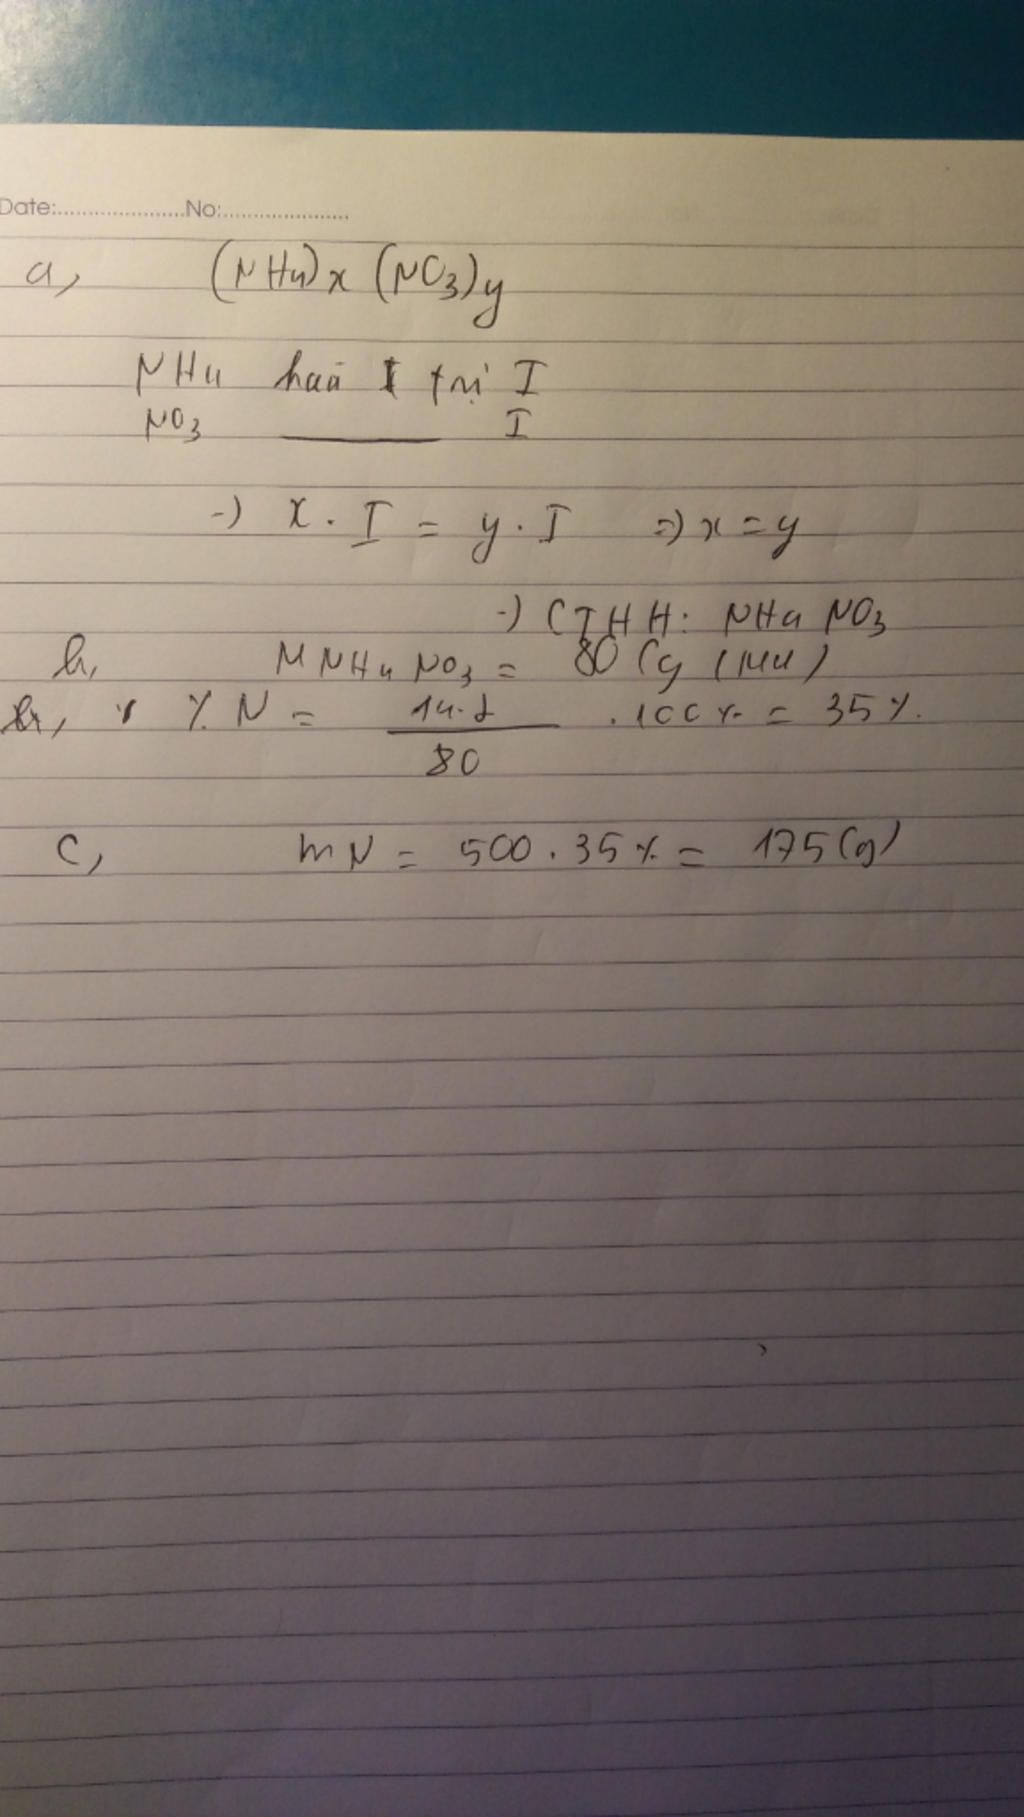 Date:......................No:......................
a, (NH4)x (NO3)y
NH4 hoá trị I
NO3 ——— I
-) x . I = y . I => x = y
-) CTHH: NH4 NO3
b, M NH4 NO3 = 80 (g / mol)
% N = 14.2 / 80 . 100% = 35%.
c, mN = 500 . 35% = 175 (g)